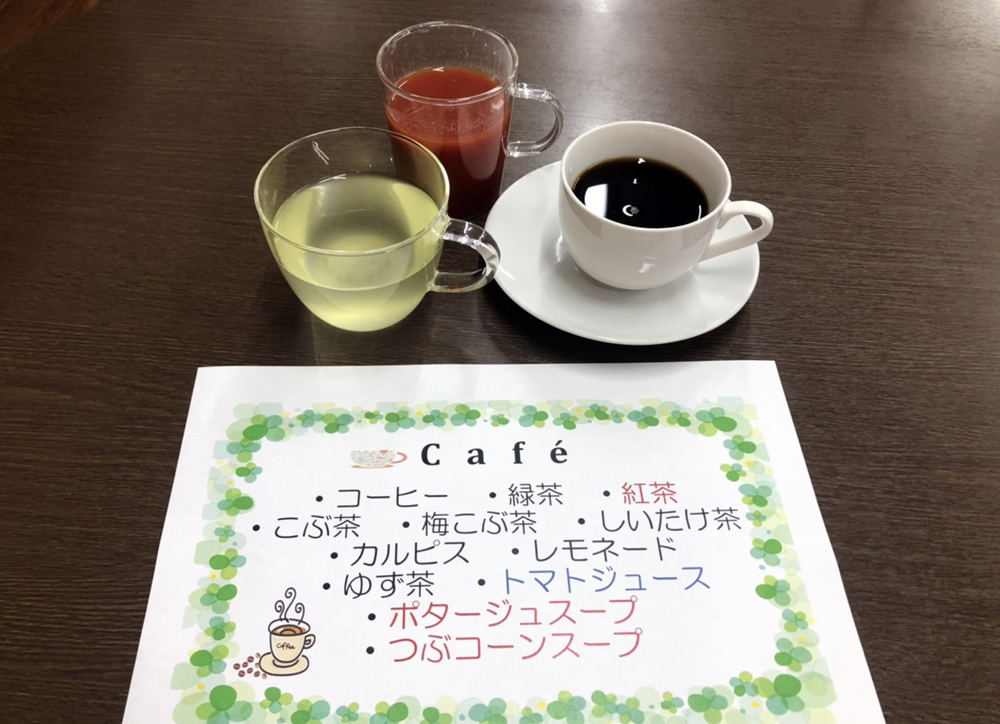 Café
・コーヒー ・緑茶 ・紅茶
・こぶ茶 ・梅こぶ茶 ・しいたけ茶
・カルピス ・レモネード
・ゆず茶 ・トマトジュース
・ポタージュスープ
・つぶコーンスープ
Coffee